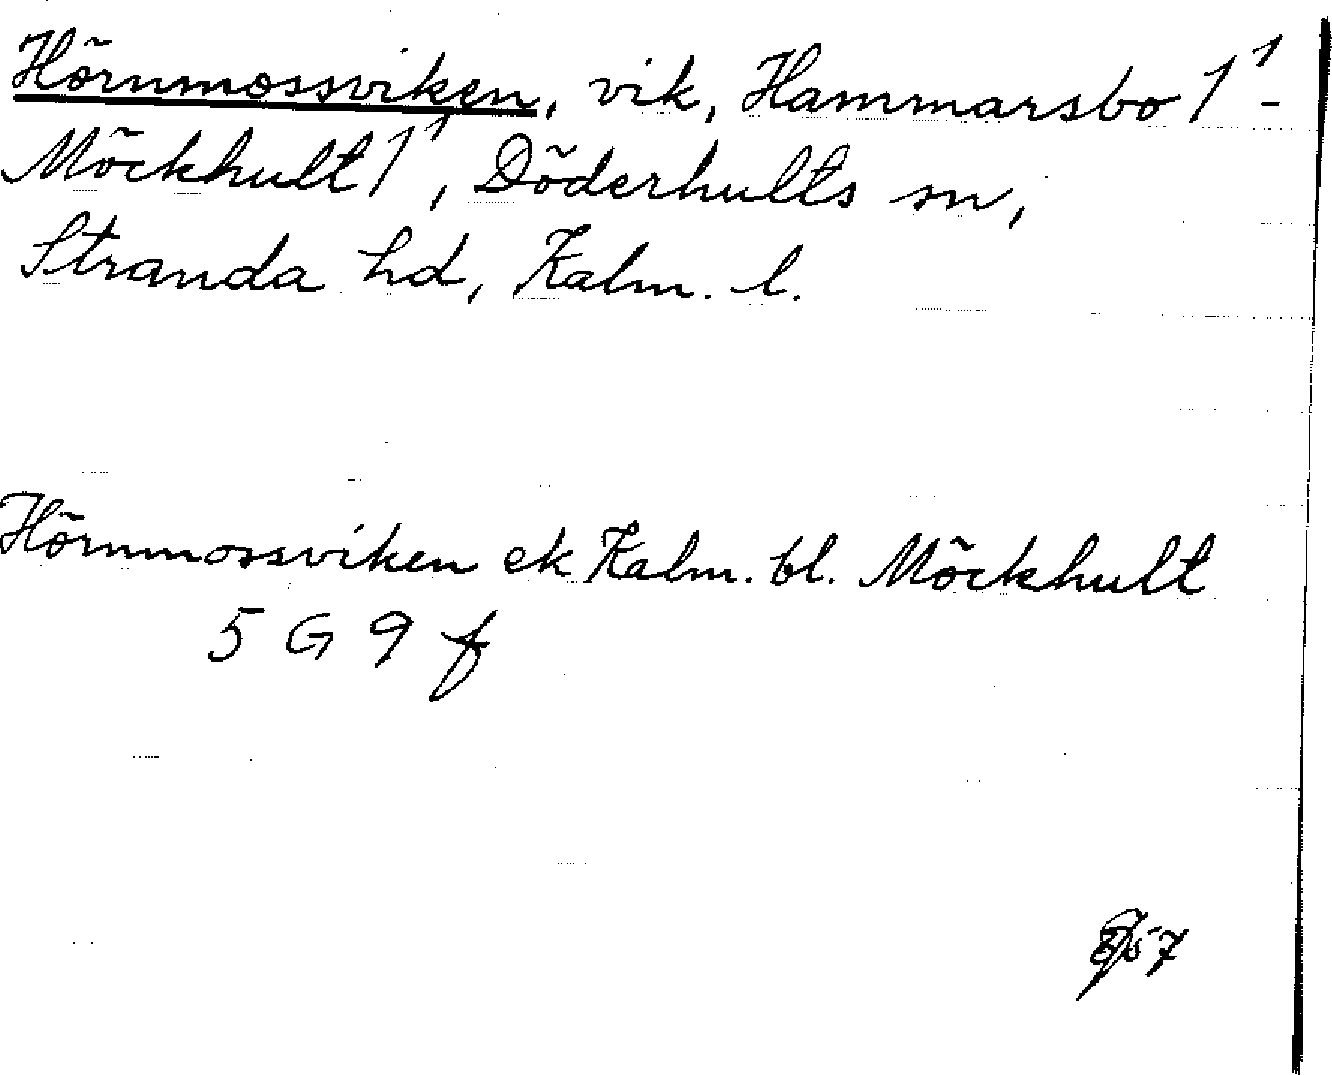 Hörnmossviken, vik, Hammarsbo 1¹-
Möckhult 1¹, Döderhults sn,
Stranda hd, Kalm. l.
Hörnmossviken ek Kalm. bl. Möckhult
5 G 9 f